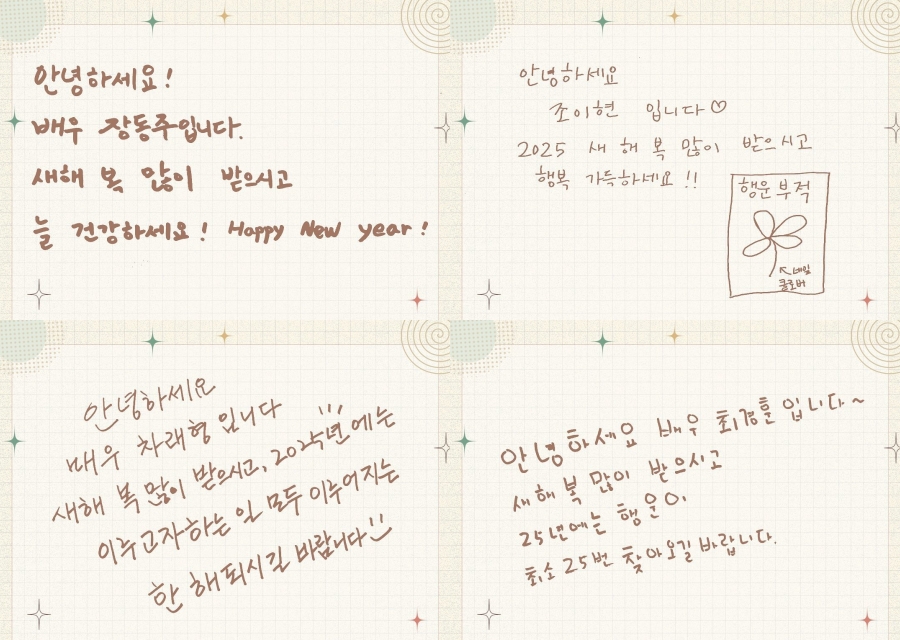 안녕하세요!
배우 장동주입니다.
새해 복 많이 받으시고
늘 건강하세요! Happy New year!
안녕하세요
조이현 입니다♡
2025 새 해 복 많이 받으시고
행복 가득하세요 !!
행운 부적
↖네잎
클로버
안녕하세요
배우 차래형 입니다
새해 복 많이 받으시고, 2025년에는
이루고자하는 일 모두 이루어지는
한 해 되시길 바랍니다
안녕하세요 배우 최경훈 입니다~
새해 복 많이 받으시고
25년에는 행운이
최소 25번 찾아오길 바랍니다.